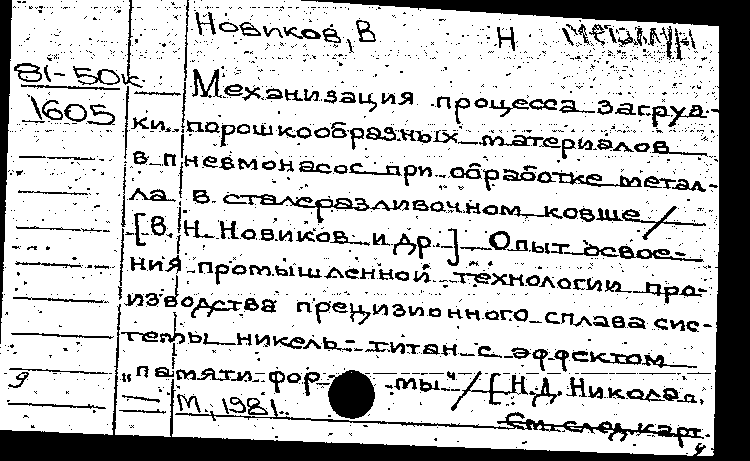 Новиков, В Н
81-50к
1605
Механизация процесса загруз-
ки порошкообразных материалов
в пневмонасос при обработке метал-
ла в сталеразливочном ковше /
[В. Н. Новиков и др.] Опыт освое-
ния промышленной технологии про-
изводства прецизионного сплава сис-
темы никель-титан с эффектом
„памяти фор- мы" / [Н.Д. Никола
М., 1981.
См. след. карт.
9